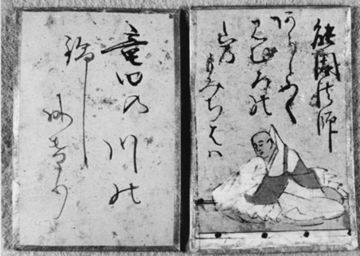 能因法師
あらしふく
みむろの
山の
もみちはハ
竜田の川の
錦
なりけり